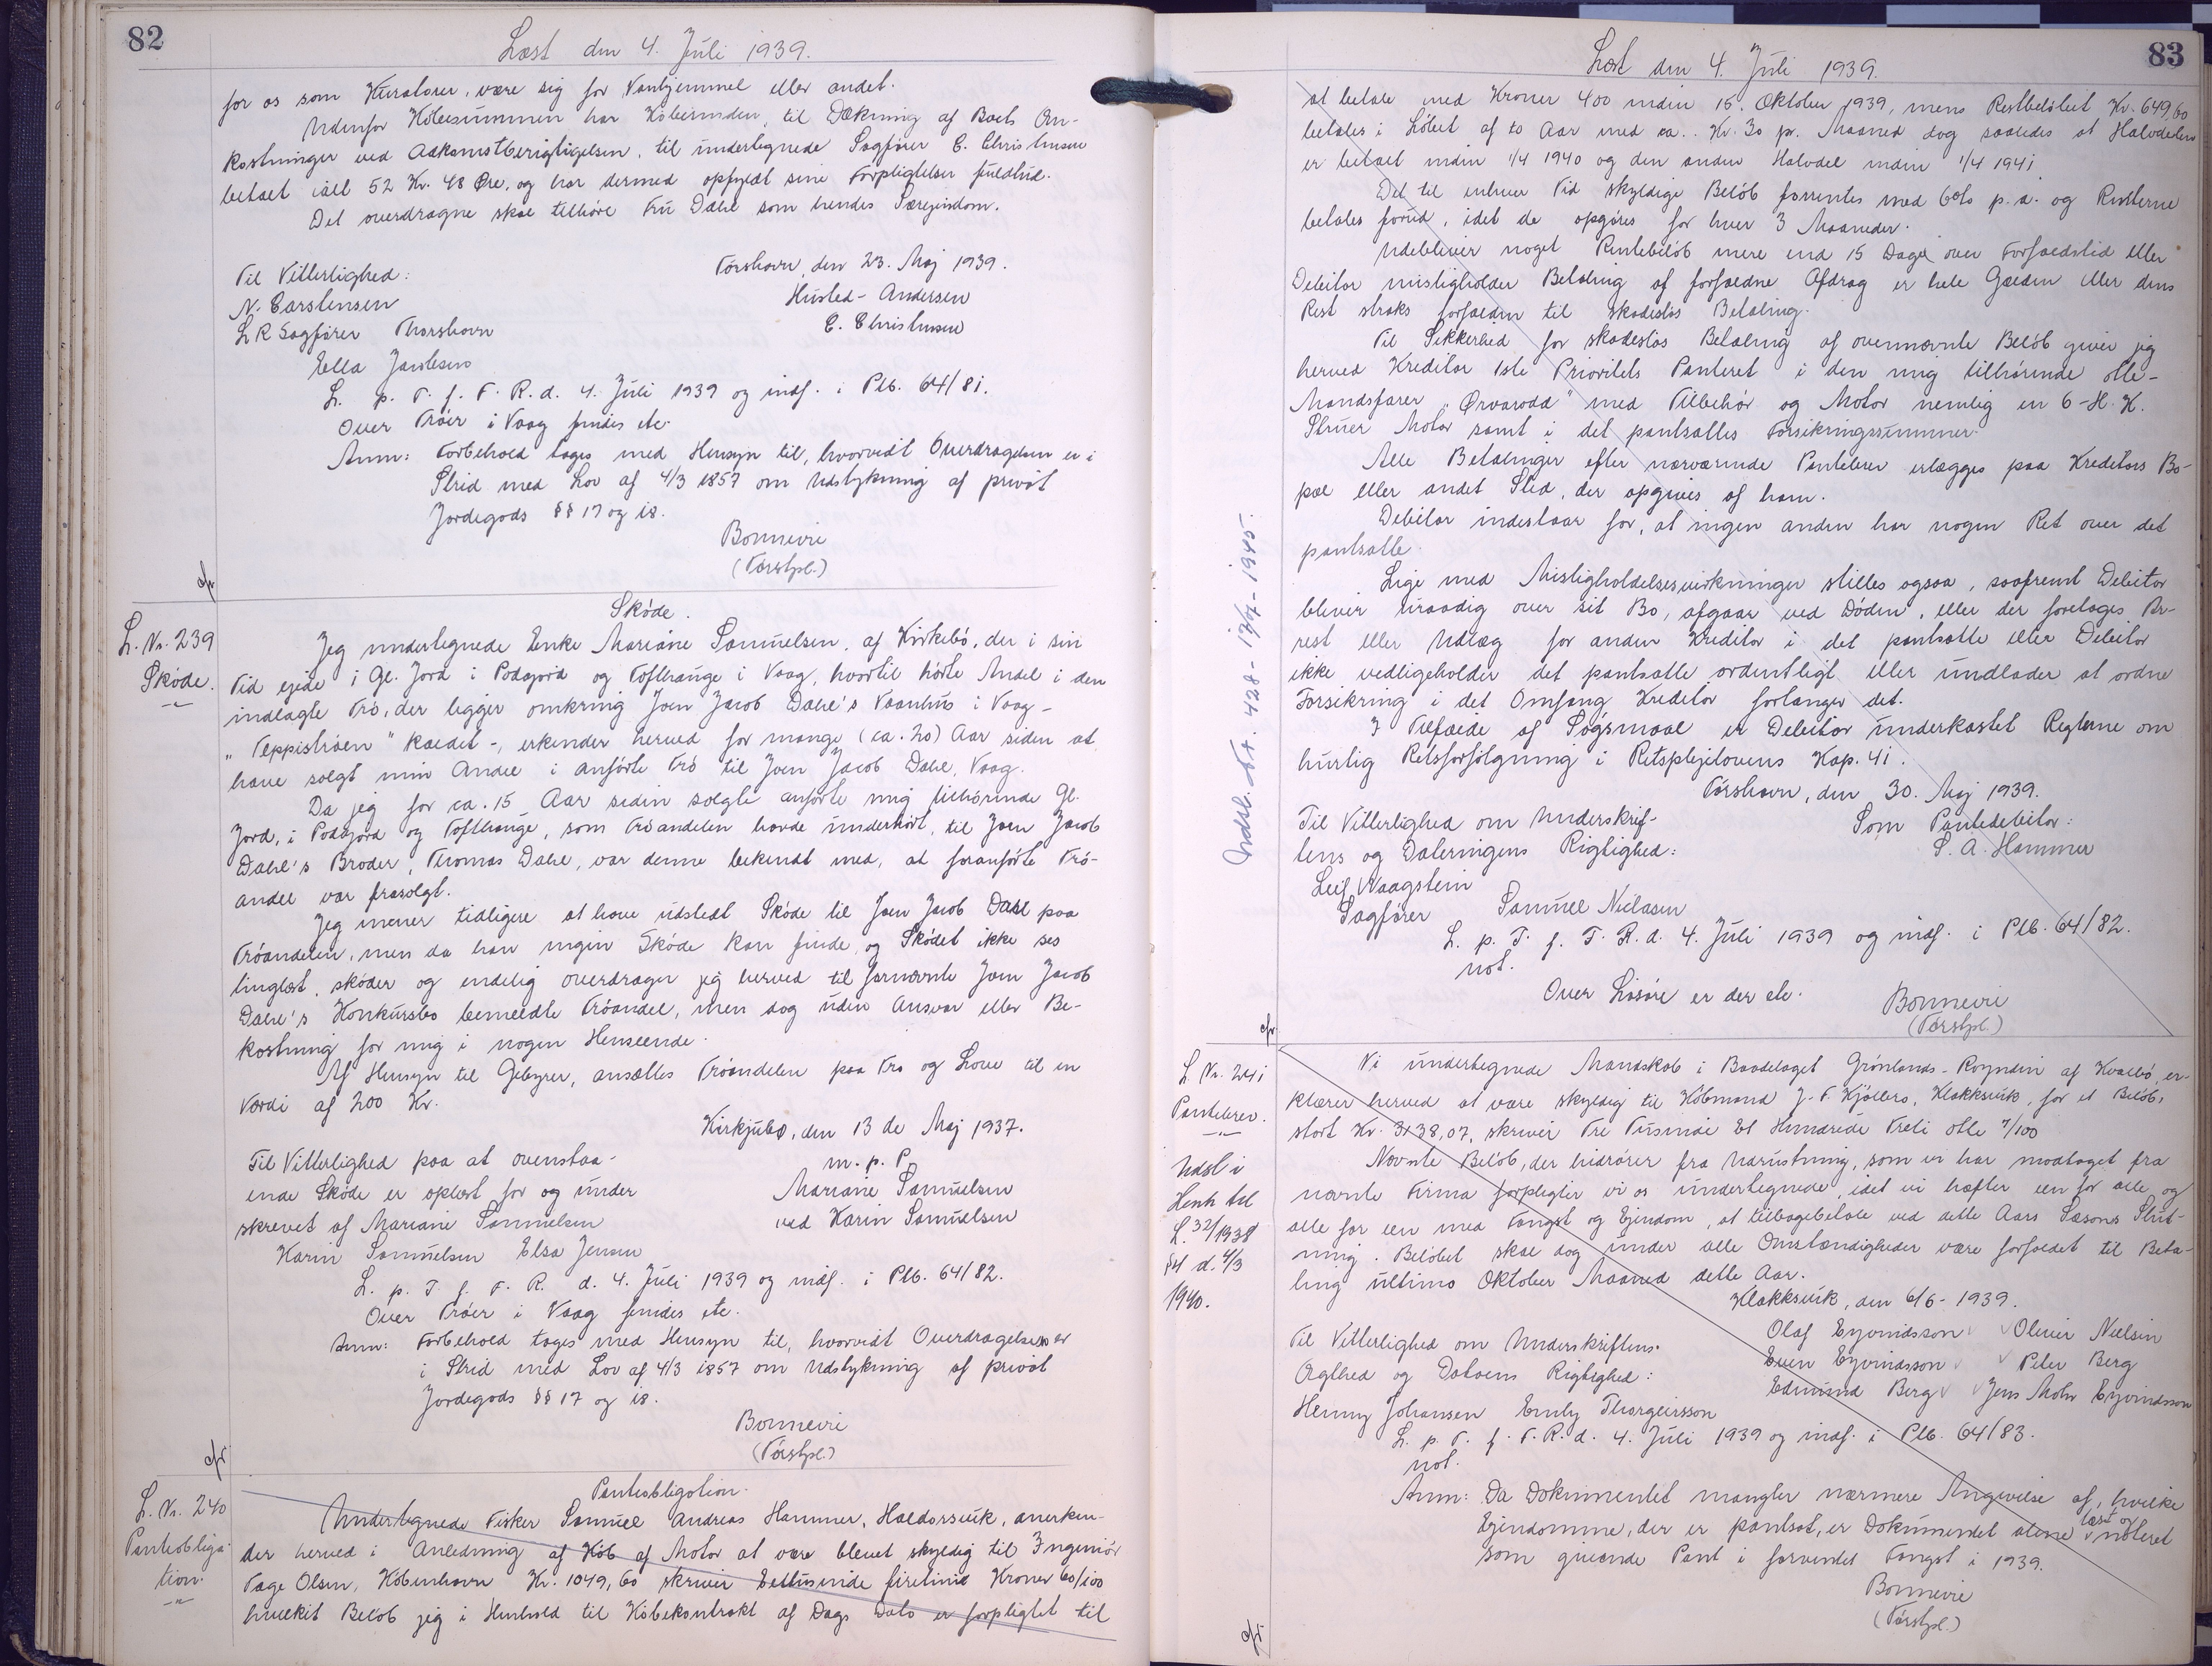 82
Læst den 4. Juli 1939.
for os som Kuratorer, være sig for Vanhjemmel eller andet.
Udenfor Købesummen har Køberinden, til Dækning af Boets Om-
kostninger ved Adkomstberigtigelsen, til undertegnede Sagfører C. Christensen
betalt ialt 52 Kr. 48 Øre, og har dermed opfyldt sine Forpligtelser fuldtud.
Det overdragne skal tilhøre Fru Dahl som hendes Særejendom.
Tórshavn, den 23. Maj 1939.
Til Vitterlighed:
Husted-Andersen
N. Carstensen
C. Christensen
L R Sagfører Thorshavn
Ella Jacobsen
L. p. T. f. F. R. d. 4. Juli 1939 og indf. i Plb. 64/81.
Over Trøer i Vaag findes etc.
Anm: Forbehold tages med Hensyn til, hvorvidt Overdragelsen er i
Strid med Lov af 4/3 1857 om Udstykning af privat
Jordegods §§ 17 og 18.
Bonnevie
(Torshpl.)
cfr
Skøde.
L. Nr. 239
Skøde.
Jeg undertegnede Enke Mariane Samuelsen, af Kirkebø, der i sin
Tid ejede i Gl. Jord i Podagjord og Tofthauge i Vaag, hvortil hørte Andel i den
indlagte Trø, der ligger omkring Joen Jacob Dahl's Vaanhus i Vaag -
"Teppistrøen" kaldet -, erkender herved for mange (ca. 20) Aar siden at
have solgt min Andel i anførte Trø til Joen Jacob Dahl, Vaag.
Da jeg for ca. 15 Aar siden solgte anførte mig tilhørende Gl.
Jord, i Podagjord og Tofthauge, som Trøandelen havde underhørt, til Joen Jacob
Dahl's Broder, Thomas Dahl, var denne bekendt med, at foranførte Trø-
andel var frasolgt.
Jeg mener tidligere at have udstedt Skøde til Joen Jacob Dahl paa
Trøandelen, men da han ingen Skøde kan finde, og Skødet ikke ses
tinglæst, skøder og endelig overdrager jeg herved til fornævnte Joen Jacob
Dahl's Konkursbo bemeldte Trøandel, men dog uden Ansvar eller Be-
kostning for mig i nogen Henseende.
Af Hensyn til Gebyrer, ansættes Trøandelen paa Tro og Love til en
Værdi af 200 Kr.
Kirkjubø, den 13 de Maj 1937.
Til Vitterlighed paa at ovenstaa-
m. p. P.
ende Skøde er oplæst for og under
Mariane Samuelsen
skrevet af Mariane Samuelsen
ved Karin Samuelsen
Karin Samuelsen Elsa Jensen
L. p. T. f. F. R. d. 4. Juli 1939 og indf. i Plb. 64/82.
Over Trøer i Vaag findes etc.
Anm: Forbehold tages med Hensyn til, hvorvidt Overdragelsen er
i Strid med Lov af 4/3 1857 om Udstykning af privat
Jordegods §§ 17 og 18.
Bonnevie
(Tórshpl.)
cfr.
Panteobligation.
L. Nr. 240
Panteobliga-
tion.
Undertegnede Fisker Samuel Andreas Hammer, Haldorsvik, anerken-
der herved i Anledning af Køb af Motor at være blevet skyldig til Ingeniør
Tage Olsen, København Kr. 1049,60 skriver Ettusinde firetini Kroner 60/100
hvilket Beløb jeg i Henhold til Købekontrakt af Dags Dato er forpligtet til
83
Læst den 4. Juli 1939.
at betale med Kroner 400 inden 15. Oktober 1939, mens Restbeløbet Kr. 649,60
betales i Løbet af to Aar med ca. Kr. 30 pr. Maaned dog saaledes at Halvdelen
er betalt inden 1/4 1940 og den anden Halvdel inden 1/4 1941.
Det til enhver Tid skyldige Beløb forrentes med 6% p.a. og Renterne
betales forud, idet de opgøres for hver 3 Maaneder.
Udebliver noget Rentebeløb mere end 15 Dage over Forfaldstid eller
Debitor misligholder Betaling af forfaldne Afdrag er hele Gælden eller dens
Rest straks forfalden til skadesløs Betaling.
Til Sikkerhed for skadesløs Betaling af ovennævnte Beløb giver jeg
herved Kreditor 1ste Prioritets Panteret i den mig tilhørende otte-
Mandsfarer "Ørvarodd" med Tilbehør og Motor nemlig en 6-H. K.
Struer Motor samt i det pantsattes Forsikringssummer.
Alle Betalinger efter nærværende Pantebrev erlægges paa Kreditors Bo-
pæl eller andet Sted, der opgives af ham.
Debitor indestaar for, at ingen anden har nogen Ret over det
pantsatte.
Lige med Misligholdelsesvirkninger stilles ogsaa, saafremt Debitor
bliver uraadig over sit Bo, afgaar ved Døden, eller der foretages Ar-
rest eller Udlæg for anden Kreditor i det pantsatte eller Debitor
ikke vedligeholder det pantsatte ordentligt eller undlader at ordne
Forsikring i det Omfang Kreditor forlanger det.
I Tilfælde af Søgsmaal er Debitor underkastet Reglerne om
hurtig Retsforfølgning i Retsplejelovens Kap. 41.
Tórshavn, den 30. Maj 1939.
Til Vitterlighed om Underskrif-
Som Pantedebitor:
tens og Dateringens Rigtighed:
S. A. Hammer
Leif Waagstein
Sagfører Samuel Nielasen
L. p. T. f. F. R. d. 4. Juli 1939 og indf. i Plb. 64/82.
not.
Over Løsøre er der etc.
Bonnevie
(Tórshpl.)
Udsl. Nr. 428 - 17/7 - 1945.
cfr.
L. Nr. 241
Pantebrev.
Vi undertegnede Mandskab i Baadelaget Grønlands-Royndin af Kvalbø, er-
klærer herved at være skyldig til Købmand J. F. Kjølbro, Klakksvik, for et Beløb,
stort Kr. 3138,07, skriver Tre Tusinde Et Hundrede Treti otte 7/100
Nævnte Beløb, der hidrører fra Udrustning, som vi har modtaget fra
nævnte Firma forpligter vi os undertegnede, idet vi hæfter een for alle og
alle for een med Fangst og Ejendom, at tilbagebetale ved dette Aars Sæsons Slut-
ning. Beløbet skal dog under alle Omstændigheder være forfaldet til Beta-
ling ultimo Oktober Maaned dette Aar.
Udsl i
Henh til
L. 32/1938
§4 d. 4/3
1940.
Klakksvik, den 6/6 - 1939.
Til Vitterlighed om Underskriftens
Olaf Eyvindsson Oliver Nielsen
Ægthed og Datoens Rigtighed:
Even Eyvindsson Peter Berg
Edmund Berg Jens Mohr Eyvindsson
Henny Johansen Emly Thorgeirsson
L. p. T. f. F. R. d. 4. Juli 1939 og indf. i Plb. 64/83.
not.
Anm: Da Dokumentet mangler nærmere Angivelse af, hvilke
Ejendomme, der er pantsat, er Dokumentet alene læst og noteret
som givende Pant i forventet Fangst i 1939.
Bonnevie
(Tórshpl.)
cfr.